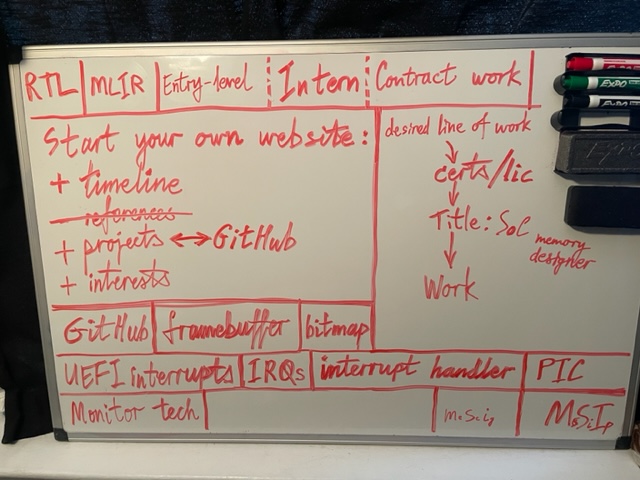 RTL MLIR Entry-level Intern Contract work
Start your own website:
+ timeline
references
+ projects ↔ GitHub
+ interests
desired line of work
↓
certs/lic
↓
Title: SoC memory designer
↓
Work
GitHub framebuffer bitmap
UEFI interrupts IRQs interrupt handler PIC
Monitor tech MoSiIp
EXPO
EXPO